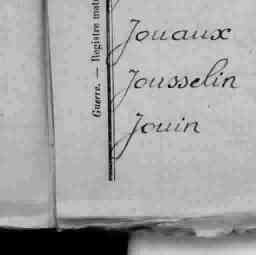 Guerre. — Registre mat
Jouaux
Jousselin
Jouin